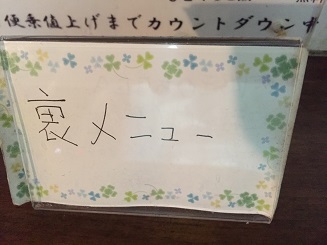 便乗値上げまでカウントダウン中
裏メニュー